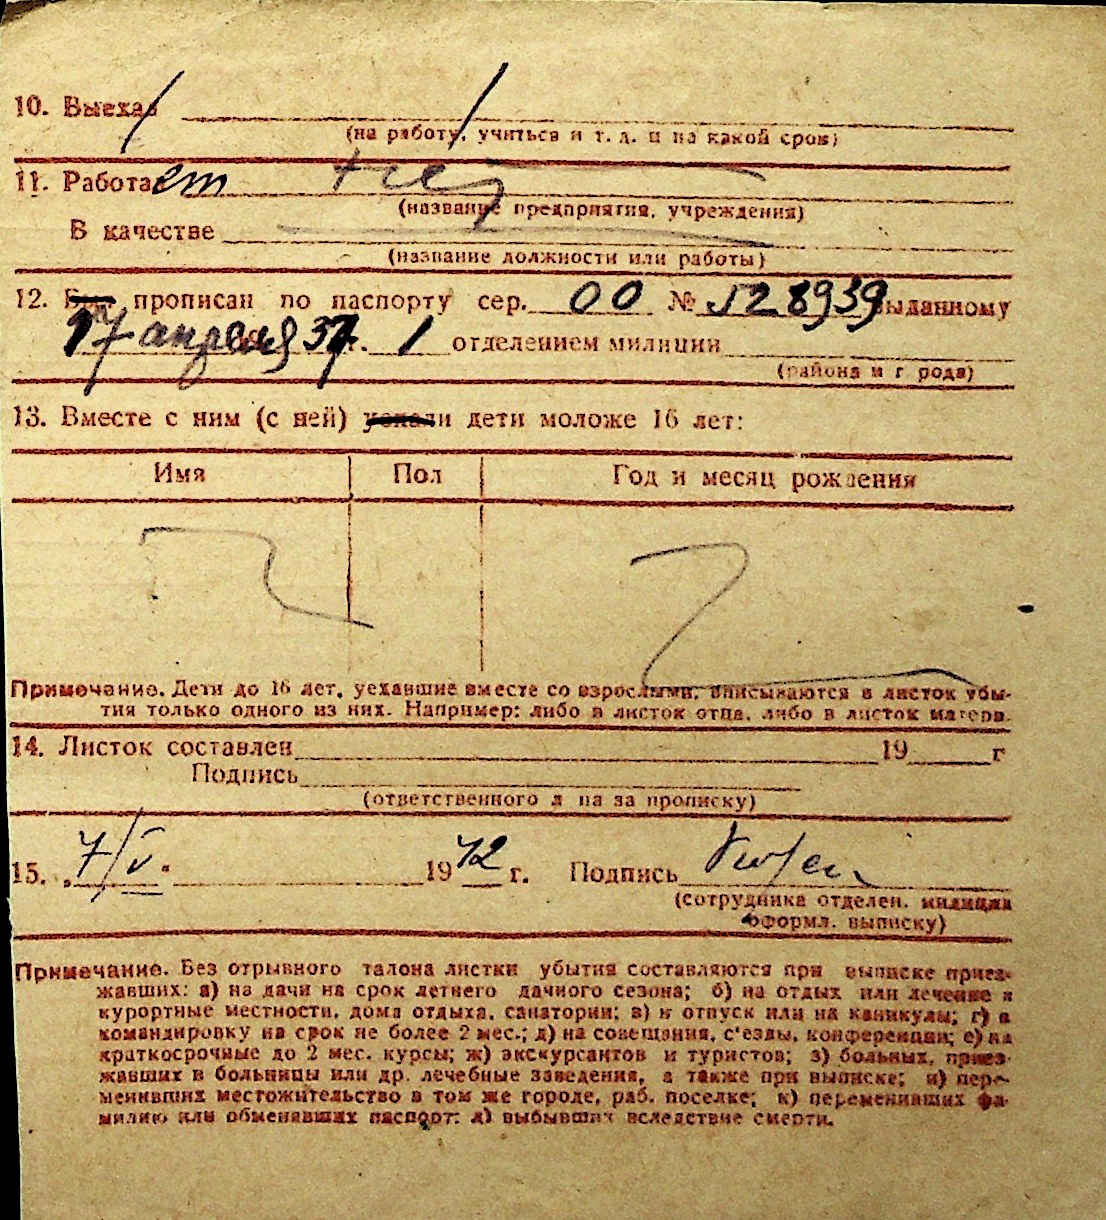 10. Выехал
(на работу, учиться и т. д. и на какой срок)
11. Работает нет
(название предприятия, учреждения)
В качестве
(название должности или работы)
12. прописан по паспорту сер. 00 № 528939 выданному
17 апреля 37 г. 1 отделением милиции
(района и города)
13. Вместе с ним (с ней) уехали дети моложе 16 лет:
Имя Пол Год и месяц рождения
Примечание. Дети до 16 лет, уехавшие вместе со взрослыми, вписываются в листок убы-
тия только одного из них. Например: либо в листок отца, либо в листок матери.
14. Листок составлен 19 г
Подпись
(ответственного л на за прописку)
15. „7/V" 1942 г. Подпись
(сотрудника отделен. милиции
оформл. выписку)
Примечание. Без отрывного талона листки убытия составляются при выписке приез-
жавших: а) на дачи на срок летнего дачного сезона; б) на отдых или лечение в
курортные местности, дома отдыха, санатории; в) в отпуск или на каникулы; г) в
командировку на срок не более 2 мес.; д) на совещания, с'езды, конференции; е) на
краткосрочные до 2 мес. курсы; ж) экскурсантов и туристов; з) больных, приез-
жавших в больницы или др. лечебные заведения, а также при выписке; и) пере-
менивших местожительство в том же городе, раб. поселке; к) переменивших фа-
милию или обменявших паспорт; л) выбывших вследствие смерти.